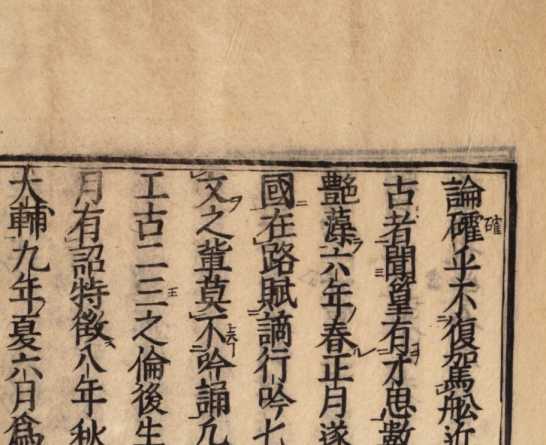 論礭乎不復駕舩近
古者聞篁有才思數
艶藻六年春正月遂
國在路賦謫行吟七
文之輩莫不吟誦凡
工古二三之倫後生
月有詔特徴八年秋
大輔九年夏六月爲